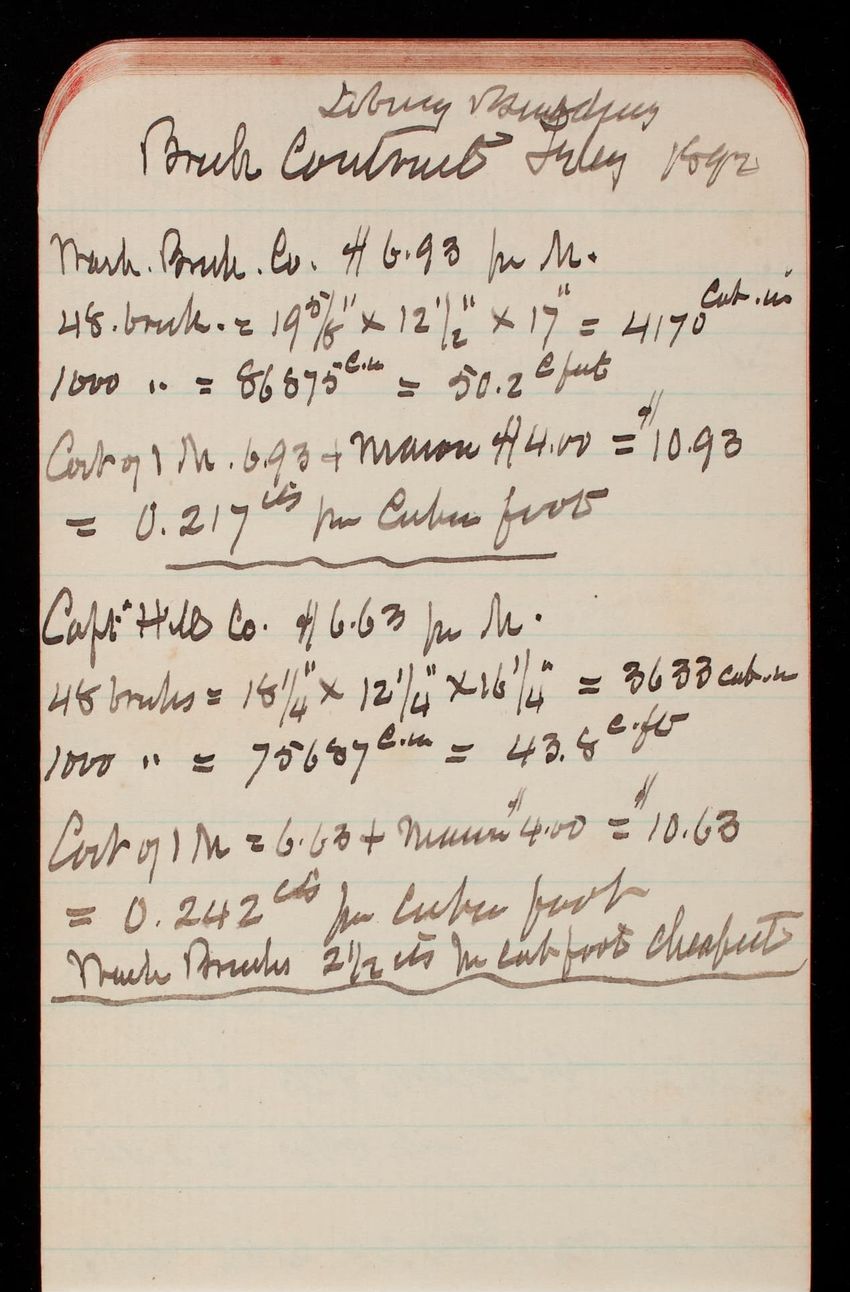 Library Building
Brick Contract July 1892
Wash. Brick. Co. $6.93 per M.
48. brick. = 19 5/8" × 12 1/2" × 17" = 4170 Cub. in
1000 " = 86875 C.in = 50.2 C feet
Cost of 1 M. 6.93 + Mason $4.00 = $10.93
= 0.217 cts per Cubic foot
Capt. Hills Co. $6.63 per M.
48 bricks = 18 1/4" × 12 1/4" × 16 1/4" = 3633 cub. in
1000 " = 75687 C.in = 43.8 c.ft
Cost of 1 M = 6.63 + Mason $4.00 = $10.63
= 0.242 cts per cubic foot
Wash Bricks 2 1/2 cts per cub foot cheapest